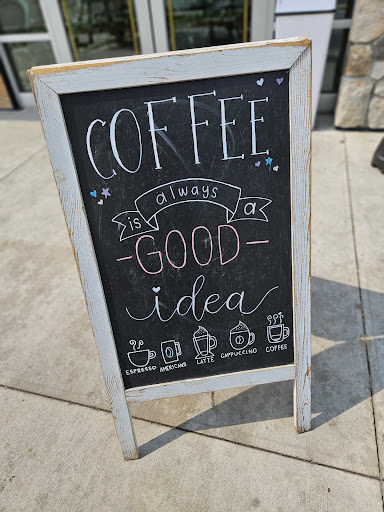 COFFEE
is always a
-GOOD-
idea
ESPRESSO AMERICANO LATTE CAPPUCCINO COFFEE